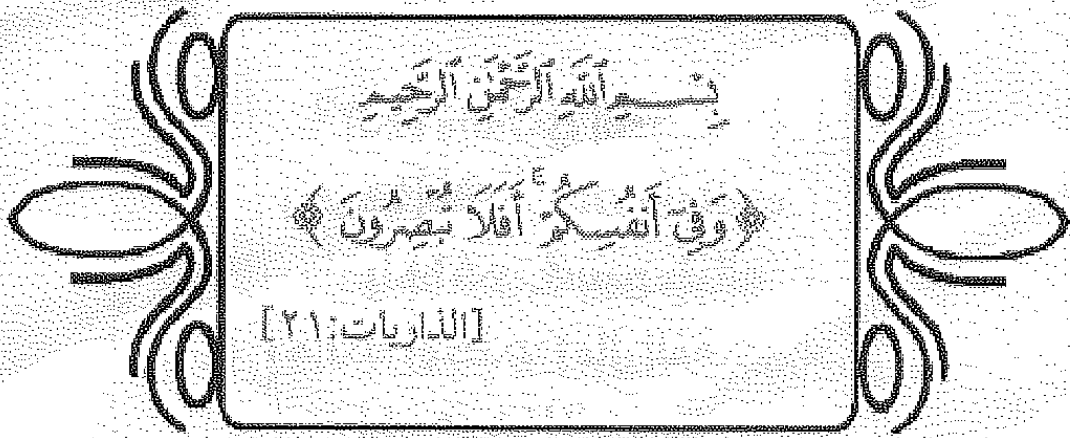 بِسْمِ ٱللَّهِ ٱلرَّحْمَٰنِ ٱلرَّحِيمِ
﴿ وَفِيٓ أَنفُسِكُمْ ۚ أَفَلَا تُبْصِرُونَ ﴾
[الذاريات:٢١]